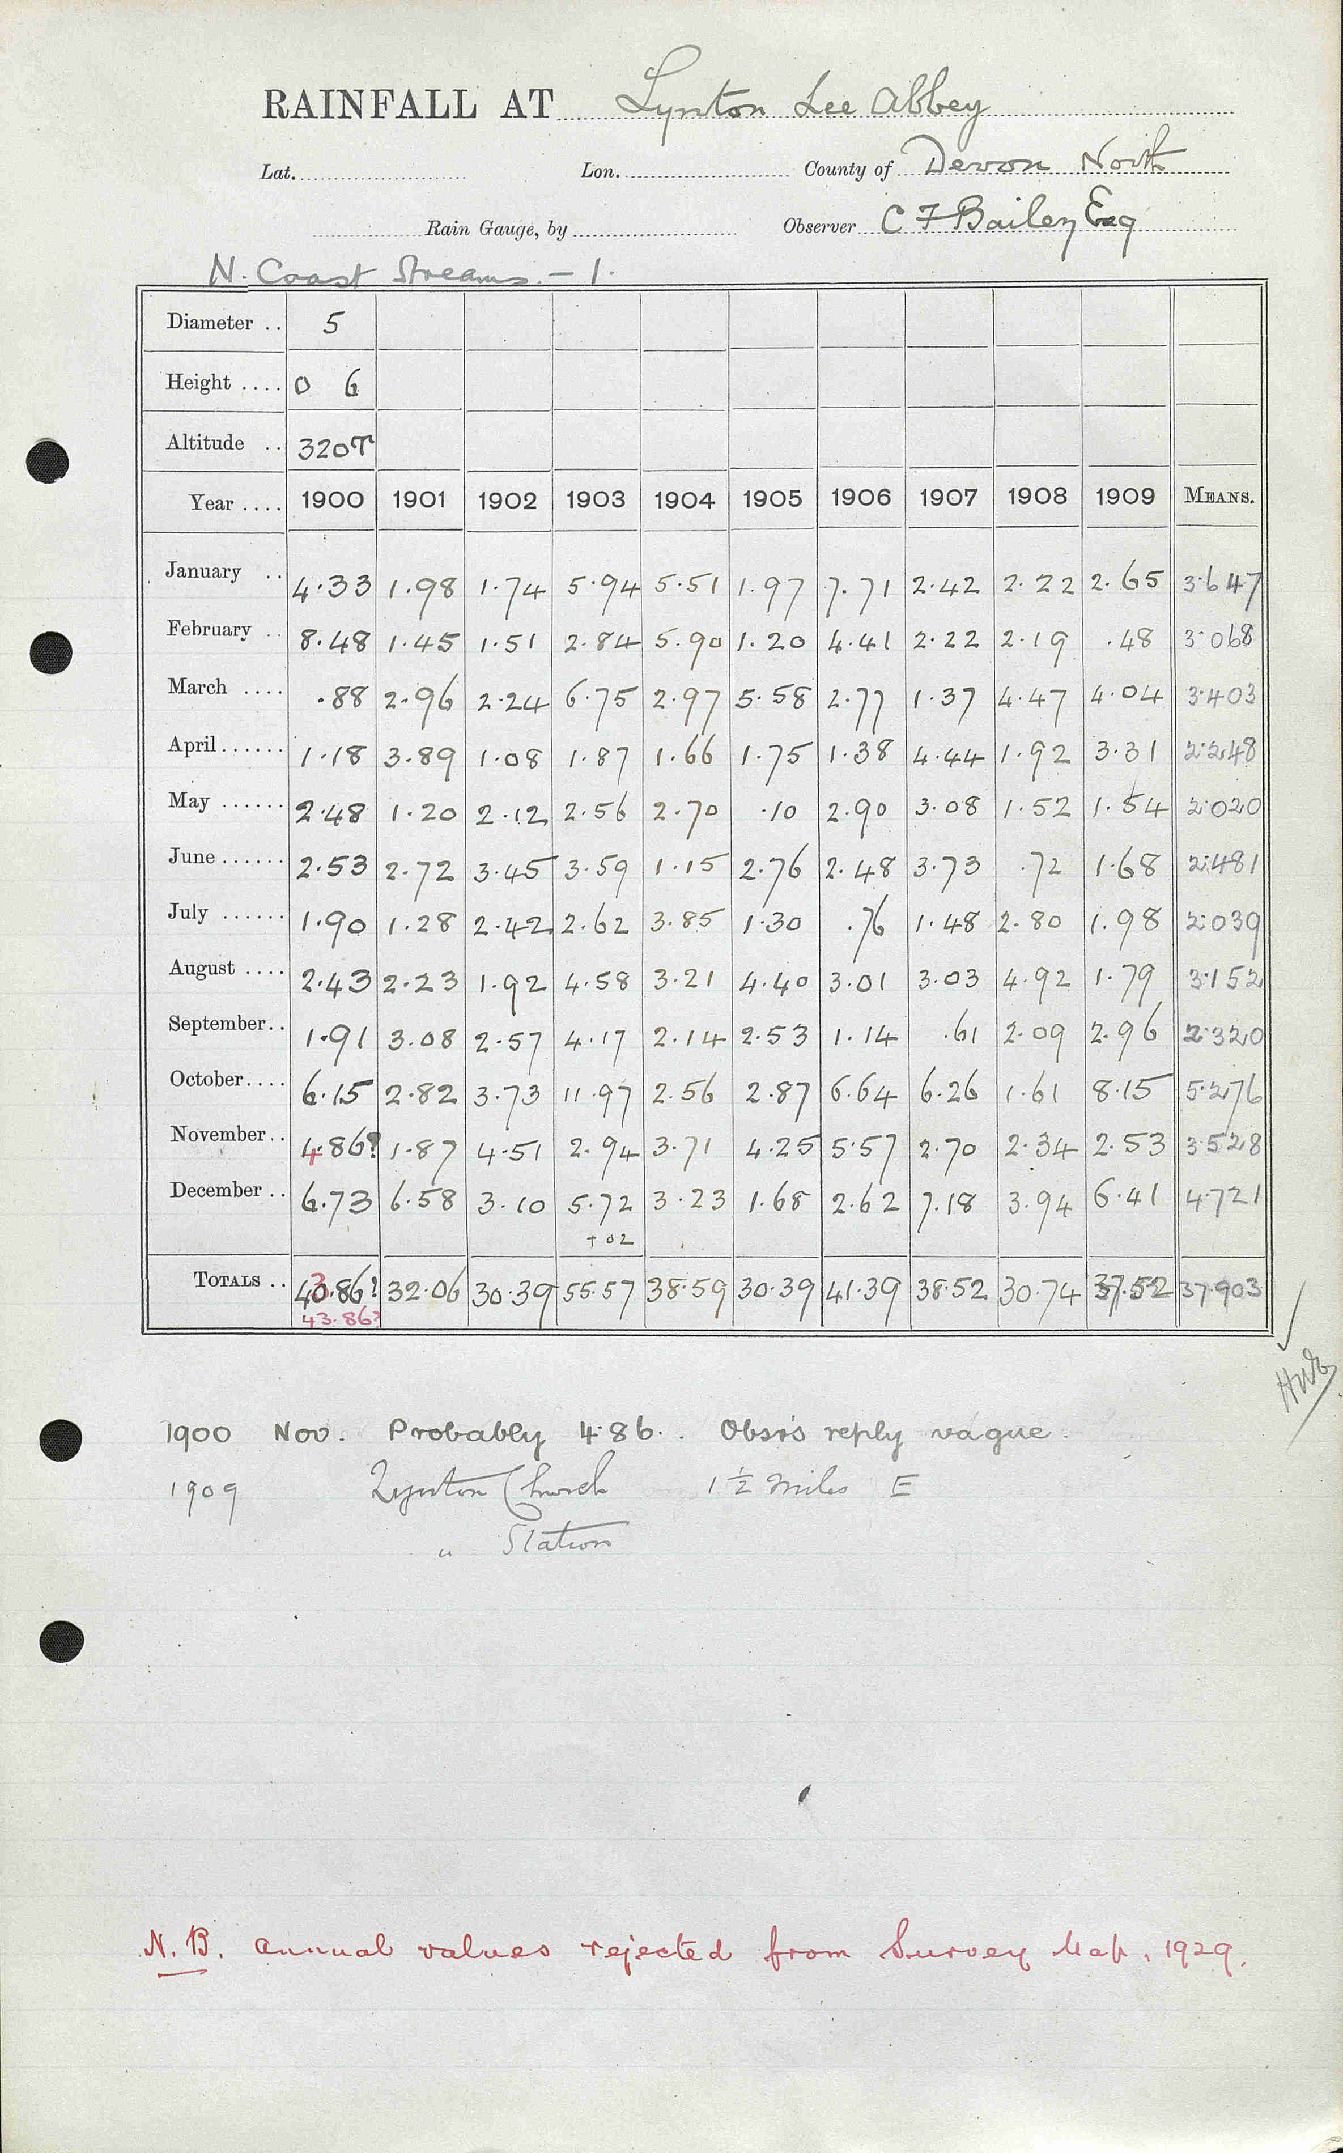 RAINFALL AT Lynton Lee Abbey
Lat. Lon. County of Devon North
Rain Gauge, by Observer C F Bailey Esq
N. Coast Streams. - 1.
Diameter .. 5
Height .... 0 6
Altitude .. 320T
Year .... 1900 1901 1902 1903 1904 1905 1906 1907 1908 1909 MEANS.
January .. 4.33 1.98 1.74 5.94 5.51 1.97 7.71 2.42 2.22 2.65 3.647
February .. 8.48 1.45 1.51 2.84 5.90 1.20 4.41 2.22 2.19 .48 3.068
March .... .88 2.96 2.24 6.75 2.97 5.58 2.77 1.37 4.47 4.04 3.403
April...... 1.18 3.89 1.08 1.87 1.66 1.75 1.38 4.44 1.92 3.31 2.248
May ...... 2.48 1.20 2.12 2.56 2.70 .10 2.90 3.08 1.52 1.54 2.020
June ...... 2.53 2.72 3.45 3.59 1.15 2.76 2.48 3.73 .72 1.68 2.481
July ...... 1.90 1.28 2.42 2.62 3.85 1.30 .76 1.48 2.80 1.98 2.039
August .... 2.43 2.23 1.92 4.58 3.21 4.40 3.01 3.03 4.92 1.79 3.152
September.. 1.91 3.08 2.57 4.17 2.14 2.53 1.14 .61 2.09 2.96 2.320
October.... 6.15 2.82 3.73 11.97 2.56 2.87 6.64 6.26 1.61 8.15 5.276
November.. 4.86? 1.87 4.51 2.94 3.71 4.25 5.57 2.70 2.34 2.53 3.528
December .. 6.73 6.58 3.10 5.72 3.23 1.68 2.62 7.18 3.94 6.41 4.721
+02
TOTALS .. 40.86? 32.06 30.39 55.57 38.59 30.39 41.39 38.52 30.74 37.52 37.903
43.86?
1900 Nov. Probably 4.86. Obsr's reply vague.
1909 Lynton Church 1½ miles E
" Station
N.B. Annual values rejected from Survey Map, 1929.